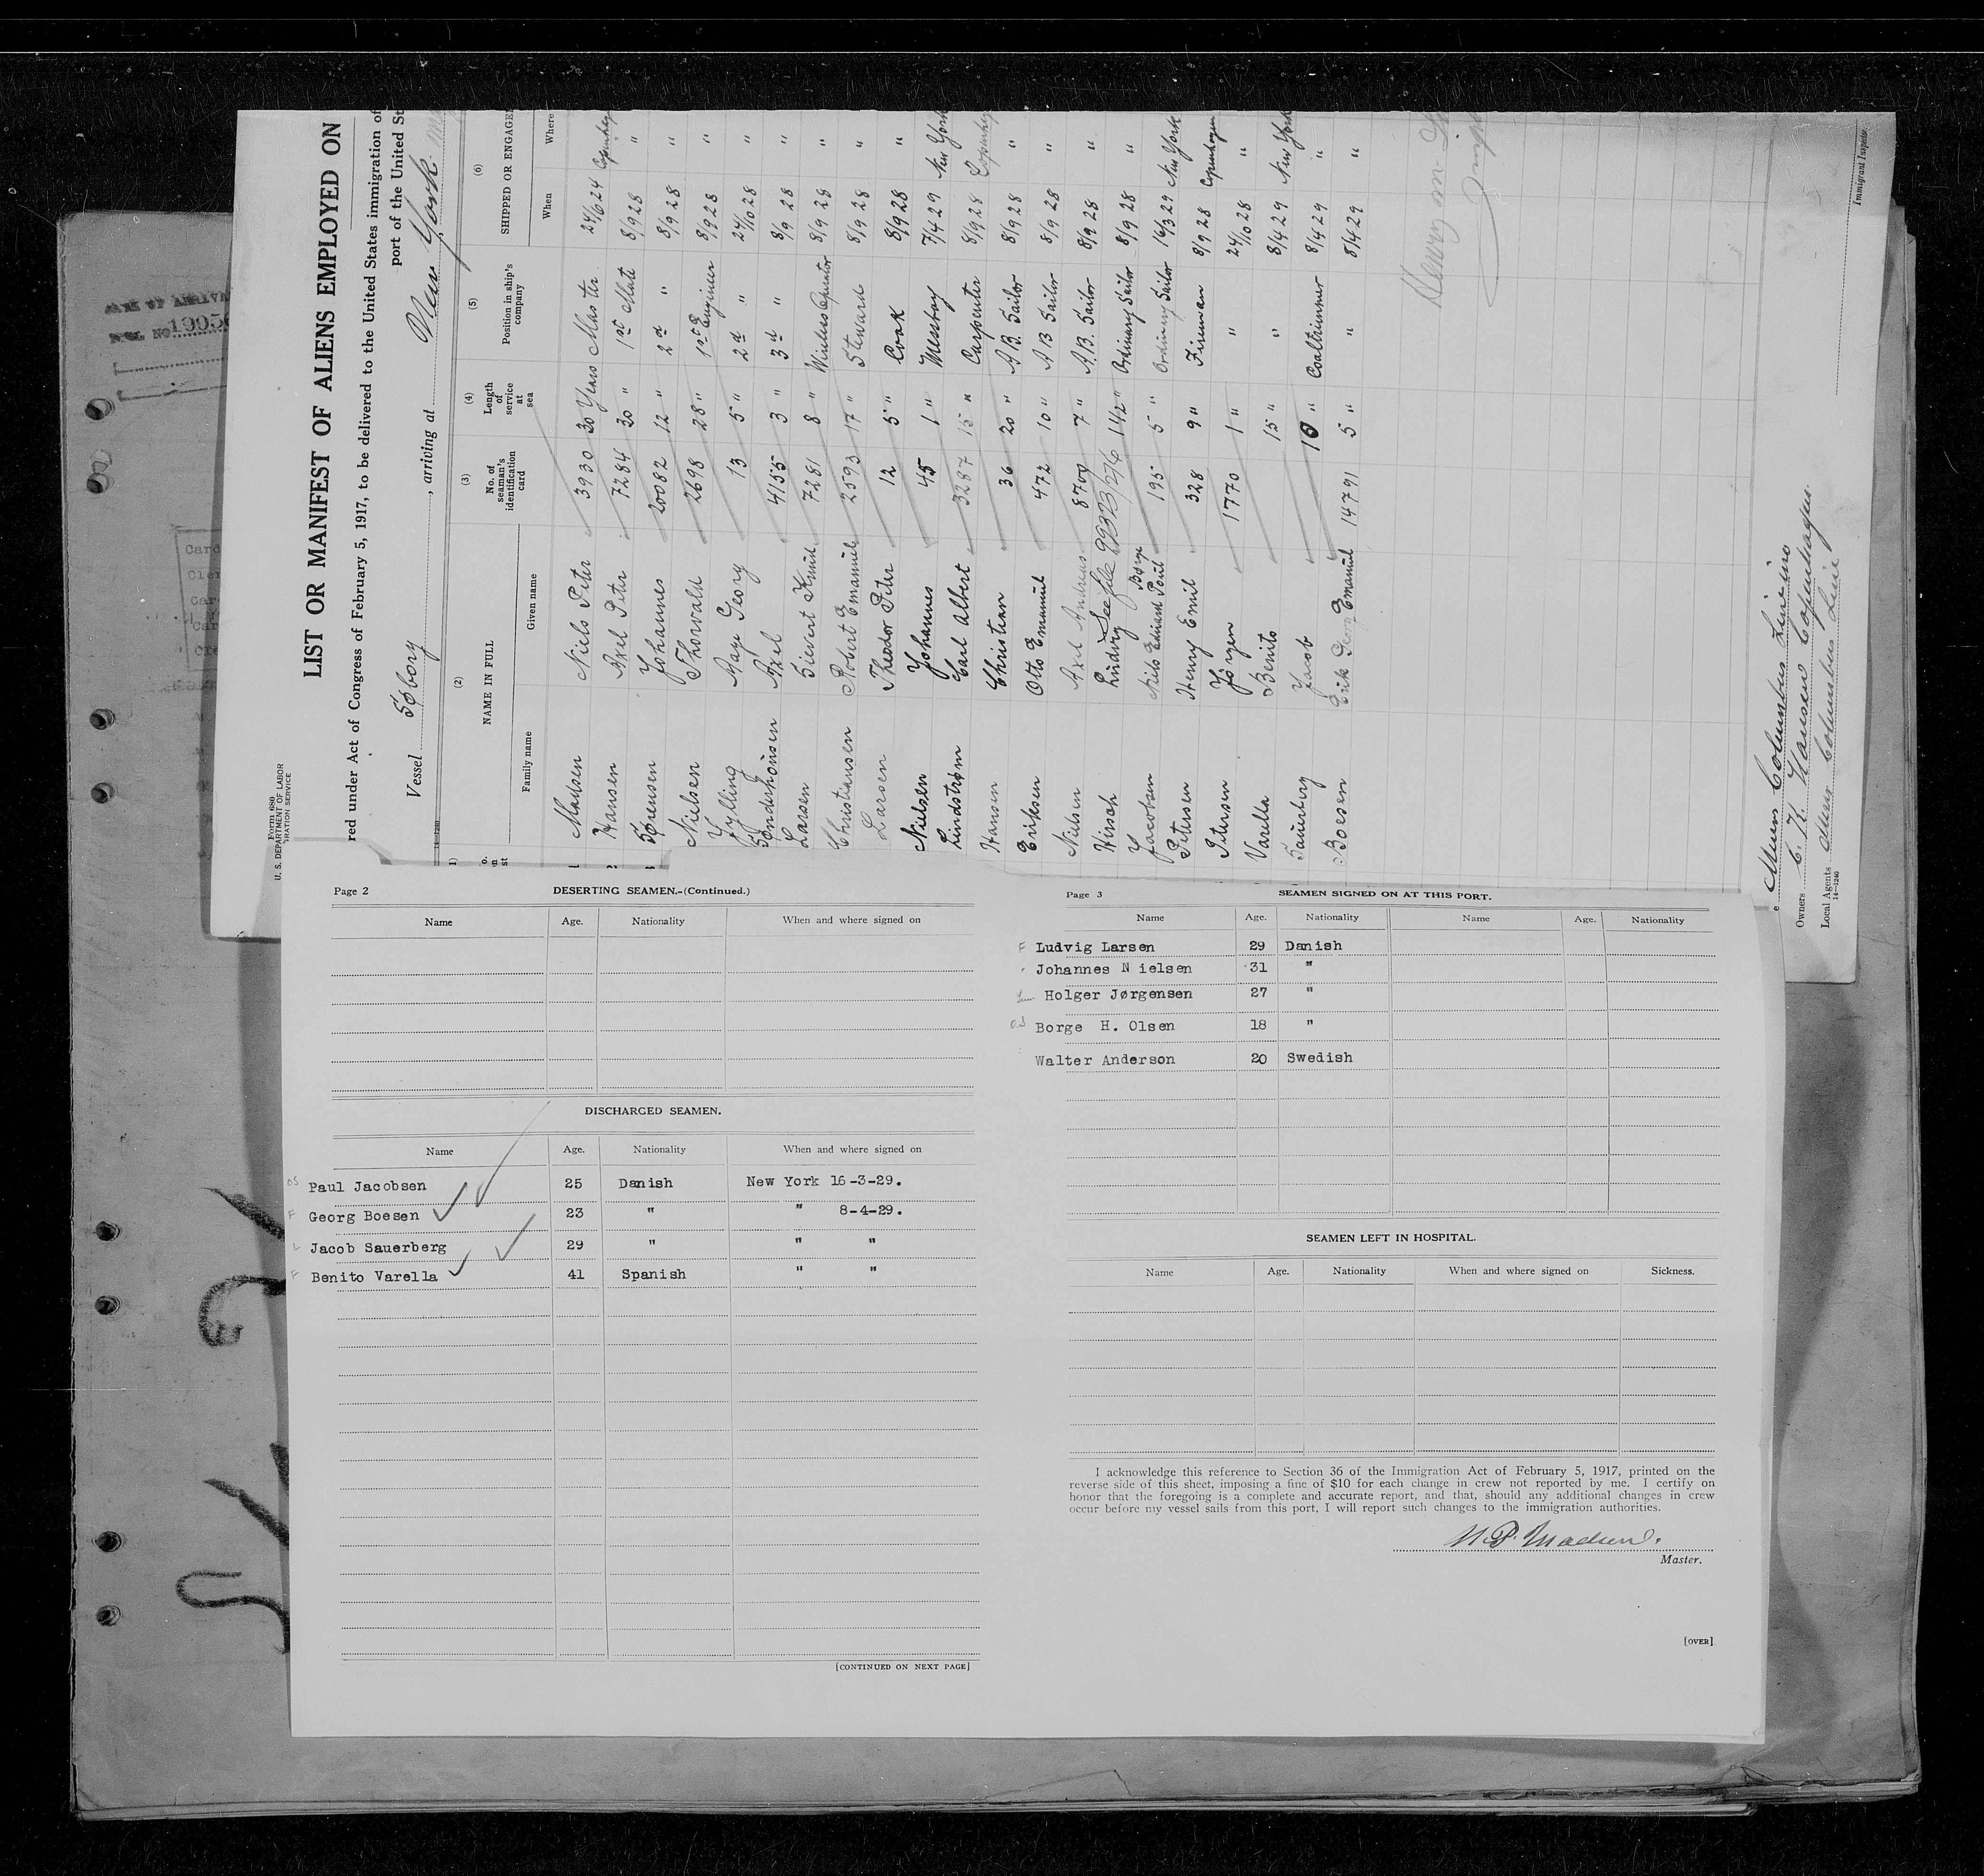 Form 680
U. S. DEPARTMENT OF LABOR
LIST OR MANIFEST OF ALIENS EMPLOYED ON
red under Act of Congress of February 5, 1917, to be delivered to the United States immigration of
port of the United St
Vessel Søborg, arriving at New York
(2) (3) (4) (5) (6)
NAME IN FULL No. of seaman's identification card Length of service at sea Position in ship's company SHIPPED OR ENGAGE
Family name Given name When Where
Madsen Niels Peter 3930 30 Years Master 24/6 24 Copenhag
Hansen Axel Peter 7284 30 " 1st Mate 8/9 28 "
Sørensen Johannes 20082 12 " 2d " 8/9 28 "
Nielsen Thorvald 2698 28 " 1st Enginer 8/9 28 "
Fylling Aage Georg 13 5 " 2d " 24/10 28 "
Axel 4155 3 " 3d " 8/9 28 "
Larsen Sievert 7281 8 " 8/9 28 "
Christiansen Robert Emanuel 2593 17 " Steward 8/9 28 "
Larsen Theodor Peter 12 5 " Cook 8/9 28 "
Nielsen Johannes 45 1 " Messboy 7/4 29 New York
Lindstrøm Carl Albert 3287 15 " Carpenter 8/9 28 Copenhag
Hansen Christian 36 20 " A B. Sailor 8/9 28 "
Eriksen Otto Emanuel 472 10 " A B Sailor 8/9 28 "
Nielsen Axel Andreas 8709 7 " A.B. Sailor 8/9 28 "
Hirsch Ludvig See file 99323/276 1 1/2 " Ordinary Sailor 8/9 28 "
Jacobsen Niels Edvard Poul Børge 195 5 " Ordinary Sailor 16/3 29 New York
Petersen Henry Emil 328 9 " Fireman 8/9 28 Copenhagen
Petersen Jörgen 1770 1 " " 24/10 28 "
Varella Benito 15 " " 8/4 29 New York
Sauerberg Jacob 10 " Coaltrimmer 8/4 29 "
Boesen Erik Georg Emanuel 14791 5 " " 8/4 29 "
Owners C. K. Hansen Copenhagen.
Local Agents Columbus Line
14—1240
Immigrant Inspector.
Page 2
DESERTING SEAMEN.-(Continued.)
Name Age. Nationality When and where signed on
DISCHARGED SEAMEN.
Name Age. Nationality When and where signed on
OS Paul Jacobsen 25 Danish New York 16-3-29.
F Georg Boesen 23 " " 8-4-29.
Jacob Sauerberg 29 " " "
F Benito Varella 41 Spanish " "
[CONTINUED ON NEXT PAGE]
Page 3
SEAMEN SIGNED ON AT THIS PORT.
Name Age. Nationality Name Age. Nationality
F Ludvig Larsen 29 Danish
Johannes N ielsen 31 "
Holger Jørgensen 27 "
OS Borge H. Olsen 18 "
Walter Anderson 20 Swedish
SEAMEN LEFT IN HOSPITAL.
Name Age. Nationality When and where signed on Sickness.
I acknowledge this reference to Section 36 of the Immigration Act of February 5, 1917, printed on the
reverse side of this sheet, imposing a fine of $10 for each change in crew not reported by me. I certify on
honor that the foregoing is a complete and accurate report, and that, should any additional changes in crew
occur before my vessel sails from this port, I will report such changes to the immigration authorities.
N.P. Madsen.
Master.
[OVER]